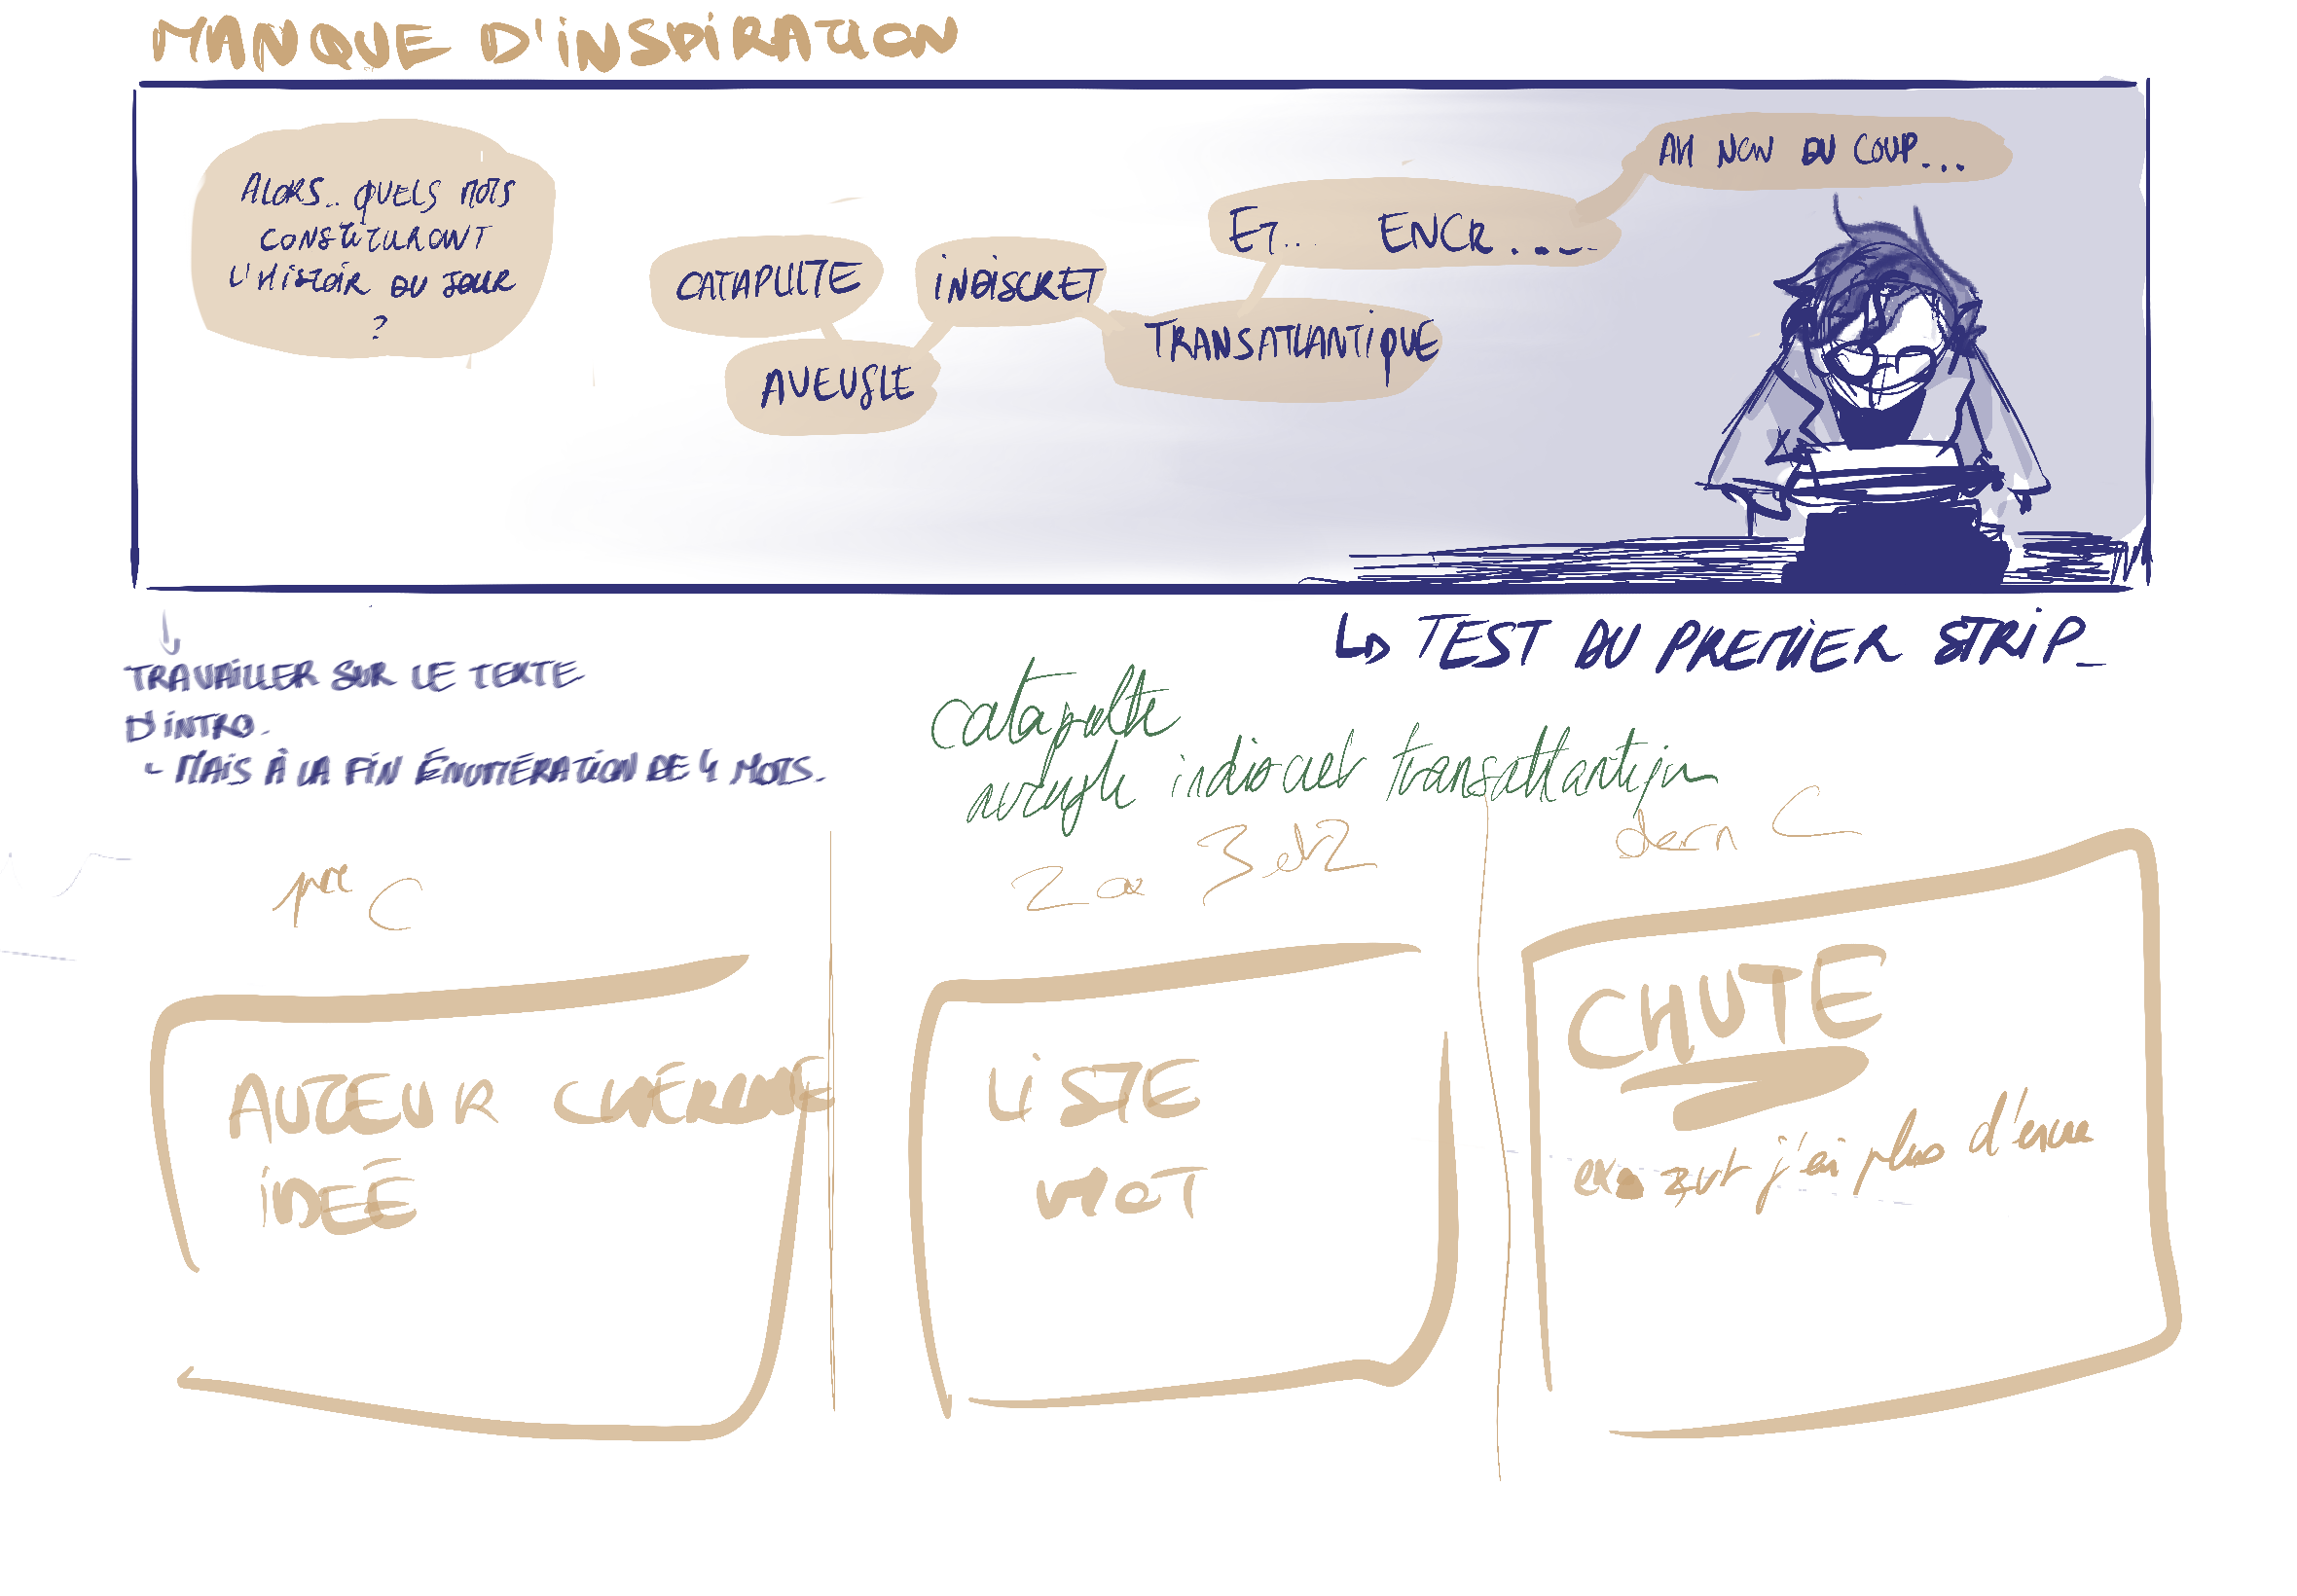 MANQUE D'INSPIRATION
ALORS.. QUELS MOTS
CONSTITURONT
L'HISTOIR DU JOUR
?
CATAPULTE
AVEUGLE
INDISCRET
TRANSATLANTIQUE
ET... ENCR....
AH NON DU COUP...
↳ TEST DU PREMIER STRIP_
TRAVAILLER SUR LE TEXTE
D'INTRO.
- MAIS À LA FIN ÉNUMÉRATION DE 4 MOTS.
catapulte
aveugle indiscret transatlantique
1ere C
2 ou 3 et 2
dern C
AUTEUR CHERCHE
IDEÉ
LISTE
MOT
CHUTE
ex zut j'ai plus d'encre